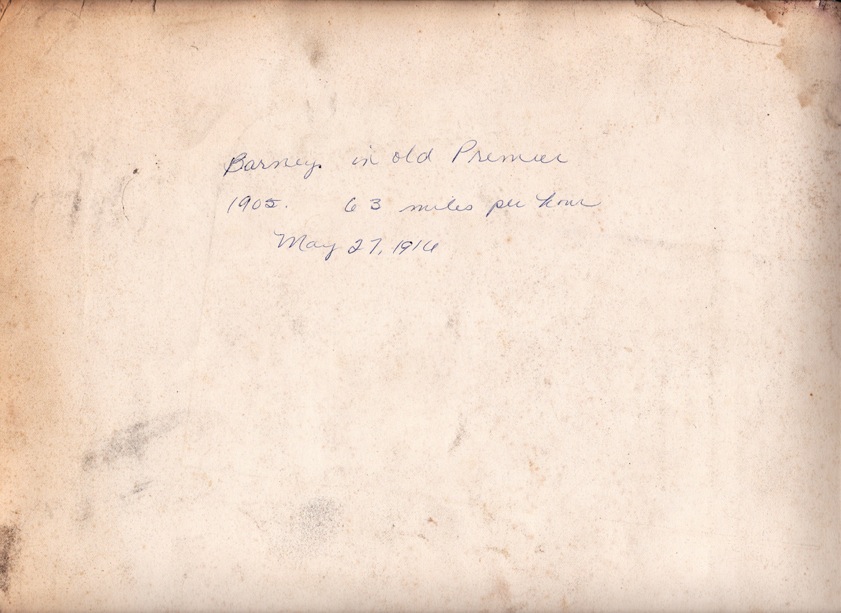 Barney in old Premier
1905. 63 miles per hour
May 27, 1916